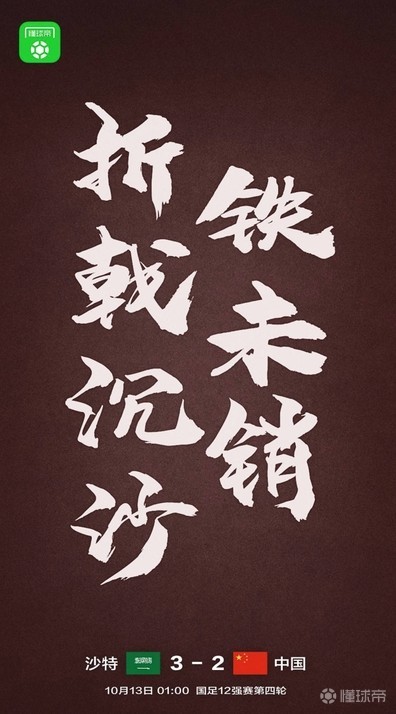 懂球帝
折戟沉沙
铁未销
沙特 3-2 中国
10月13日 01:00 国足12强赛第四轮
懂球帝